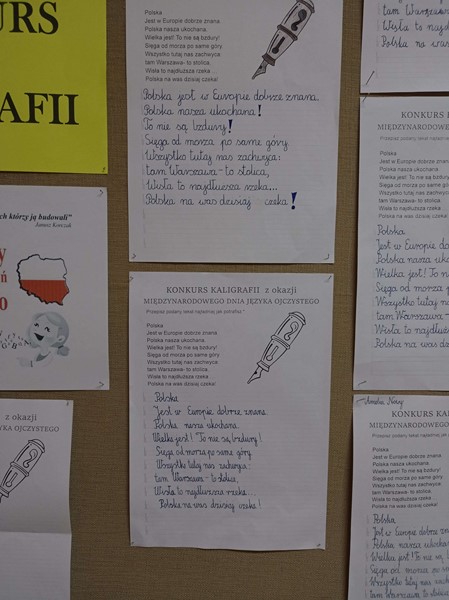 URS
AFII
Polska
Jest w Europie dobrze znana
Polska nasza ukochana.
Wielka jest! To nie są bzdury!
Sięga od morza po same góry
Wszystko tutaj nas zachwyca:
tam Warszawa- to stolica,
Wisła to najdłuższa rzeka...
Polska na was dzisiaj czeka!
Polska jest w Europie dobrze znana.
Polska nasza ukochana!
To nie są bzdury!
Sięga od morza po same góry.
Wszystko tutaj nas zachwyca:
tam Warszawa - to stolica,
Wisła to najdłuższa rzeka...
Polska na was dzisiaj czeka!
tam Warszawa
Wisła to najd
Polska na was
ch którzy ją budowali"
Janusz Korczak
KONKURS KALIGRAFII z okazji
MIĘDZYNARODOWEGO DNIA JĘZYKA OJCZYSTEGO
Przepisz podany tekst najładniej jak potrafisz
Polska
Jest w Europie dobrze znana
Polska nasza ukochana.
Wielka jest! To nie są bzdury!
Sięga od morza po same góry
Wszystko tutaj nas zachwyca:
tam Warszawa- to stolica,
Wisła to najdłuższa rzeka...
Polska na was dzisiaj czeka!
Polska
Jest w Europie dobrze znana
Polska nasza ukochana.
Wielka jest! To nie są bzdury!
Sięga od morza po same góry.
Wszystko tutaj nas zachwyca:
tam Warszawa - to stolica,
Wisła to najdłuższa rzeka...
Polska na was dzisiaj czeka!
KONKURS KALIG
MIĘDZYNARODOWEGO
Przepisz podany tekst najład
Polska
Jest w Europie dobrze znana
Polska nasza ukochana.
Wielka jest! To nie są bzdury!
Sięga od morza po same góry
Wszystko tutaj nas zachwyca:
tam Warszawa- to stolica,
Wisła to najdłuższa rzeka...
Polska na was dzisiaj czeka!
Polska
Jest w Europie do
Polska nasza uko
Wielka jest! To n
Sięga od morza
Wszystko tutaj na
tam Warszawa -
Wisła to najdłuż
Polska na was dz
z okazji
YKA OJCZYSTEGO
KONKURS KAL
MIĘDZYNARODOWEG
Polska
Jest w Europie dobrze znana
Polska nasza ukochana.
Wielka jest! To nie są bzdury!
Sięga od morza po same góry
Wszystko tutaj nas zachwyca:
tam Warszawa- to stolica,
Wisła to najdłuższa rzeka...
Polska na was dzisiaj czeka!
Polska
Jest w Europie dobrze zn
Polska nasza ukochan
Wielka jest! To nie są
Sięga od morza po sa
Wszystko tutaj nas
tam Warszawa to stol